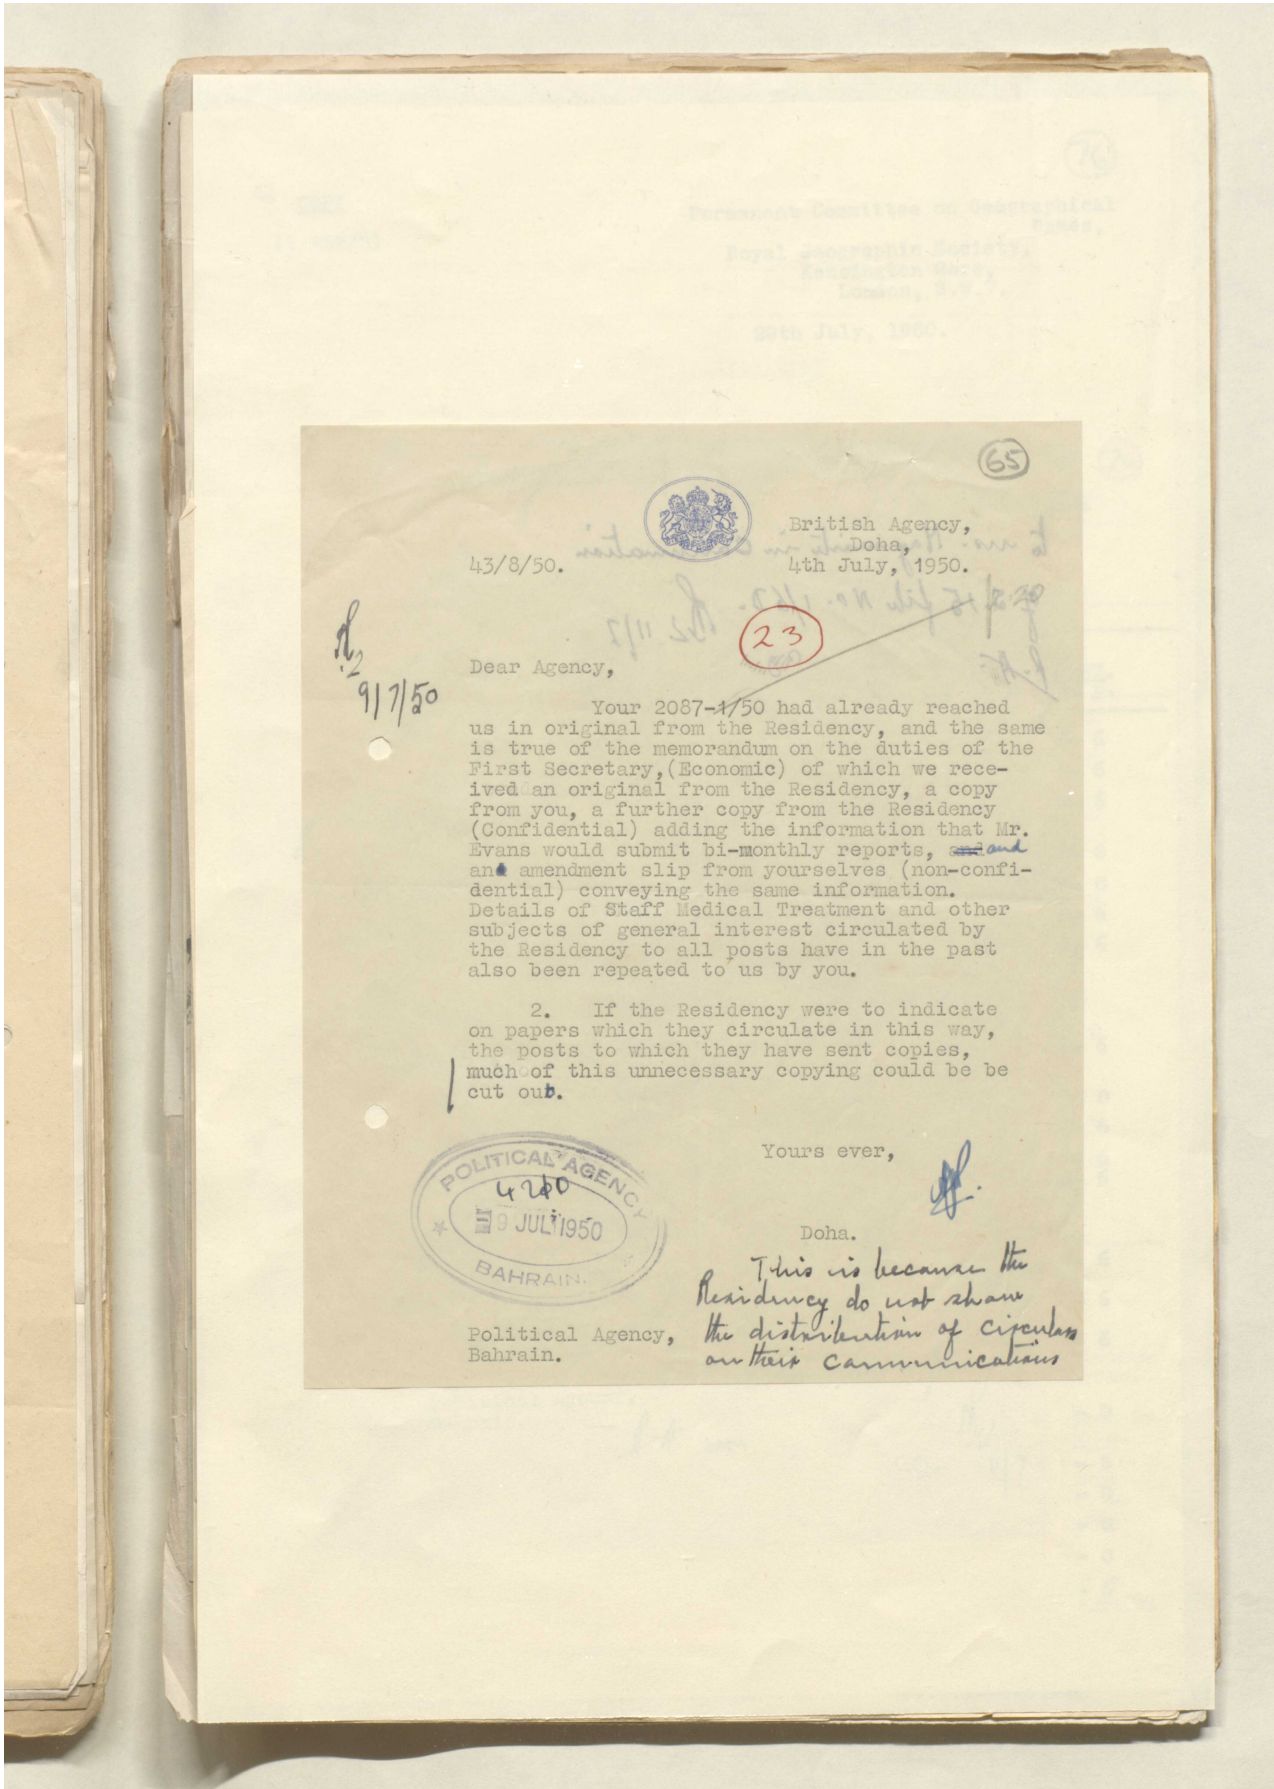 65
British Agency,
Doha,
43/8/50.
4th July, 1950.
23
9/7/50
Dear Agency,
Your 2087-1/50 had already reached
us in original from the Residency, and the same
is true of the memorandum on the duties of the
First Secretary,(Economic) of which we rece-
ived an original from the Residency, a copy
from you, a further copy from the Residency
(Confidential) adding the information that Mr.
Evans would submit bi-monthly reports, and and
an amendment slip from yourselves (non-confi-
dential) conveying the same information.
Details of Staff Medical Treatment and other
subjects of general interest circulated by
the Residency to all posts have in the past
also been repeated to us by you.
2. If the Residency were to indicate
on papers which they circulate in this way,
the posts to which they have sent copies,
much of this unnecessary copying could be be
cut out.
Yours ever,
POLITICAL AGENCY
9 JUL 1950
BAHRAIN.
Doha.
This is because the
Residency do not show
the distribution of circulars
on their communications
Political Agency,
Bahrain.
Permanent Committee on Geographical
Names,
Royal Geographic Society,
Kensington Gore,
London, S.W.7.
29th July, 1950.